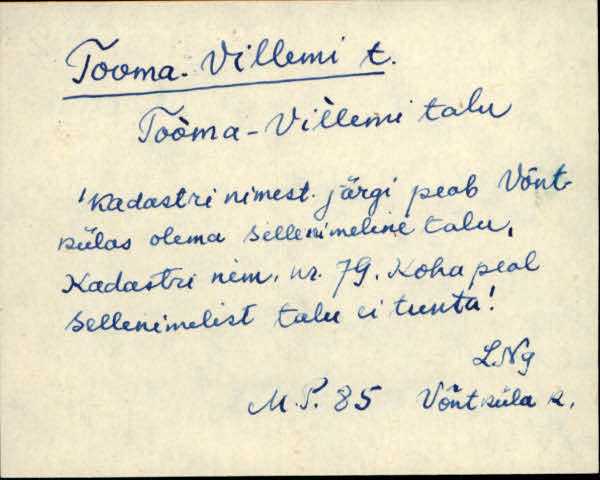 Tooma-Villemi t.
Toòma-Vìllemi talu
'Kadastri nimest. järgi peab Võnt-
külas olema sellenimeline talu,
Kadastri nim. nr. 79. Koha peal
sellenimelist talu ei tunta!
LNg
M. P. 85 Võntküla k.